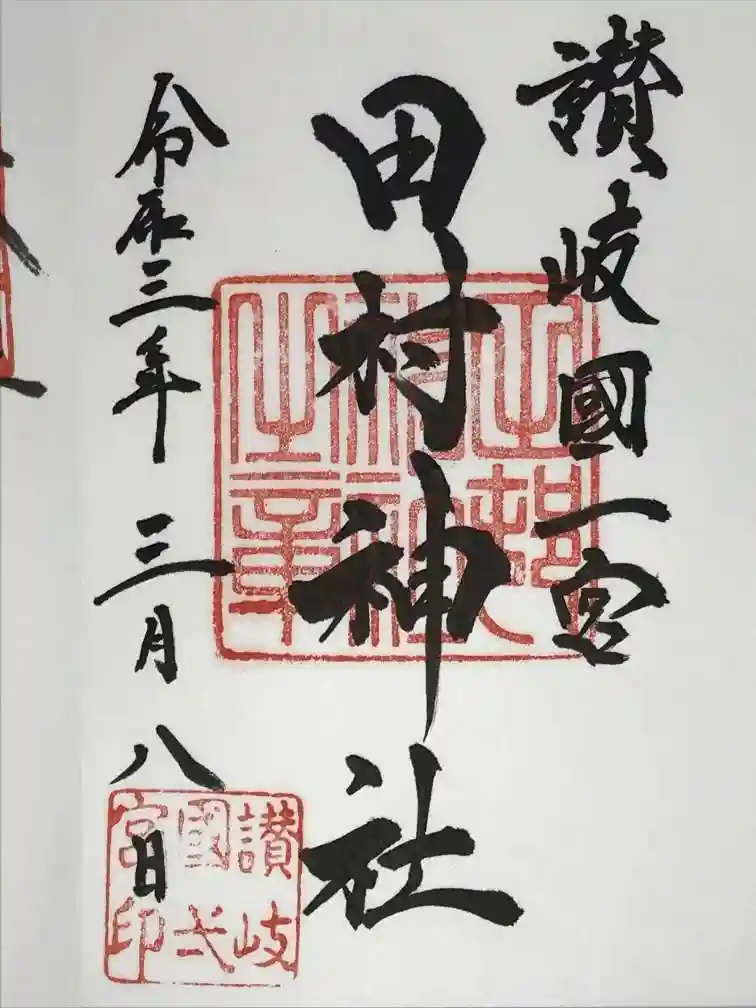 讃岐國一宮
田村神社
令和三年三月八日
讃岐
國弌
宮印